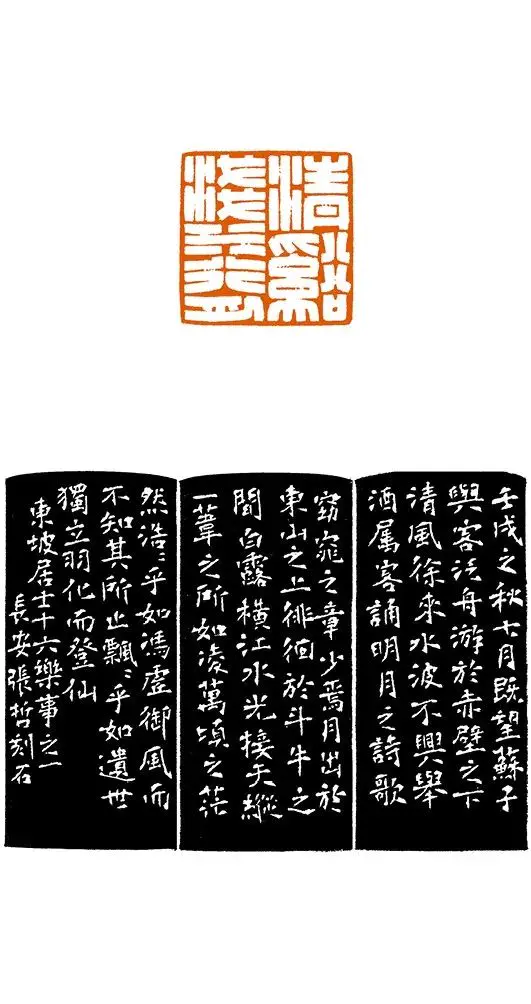 清谿
淺水行舟
壬戌之秋七月既望蘇子
與客泛舟游於赤壁之下
清風徐來水波不興舉
酒属客誦明月之詩歌
窈窕之章少焉月出於
東山之上徘徊於斗牛之
間白露橫江水光接天縱
一葦之所如凌萬頃之茫
然浩〻乎如馮虛御風而
不知其所止飄〻乎如遺世
獨立羽化而登仙
東坡居士十六樂事之一
長安張哲刻石